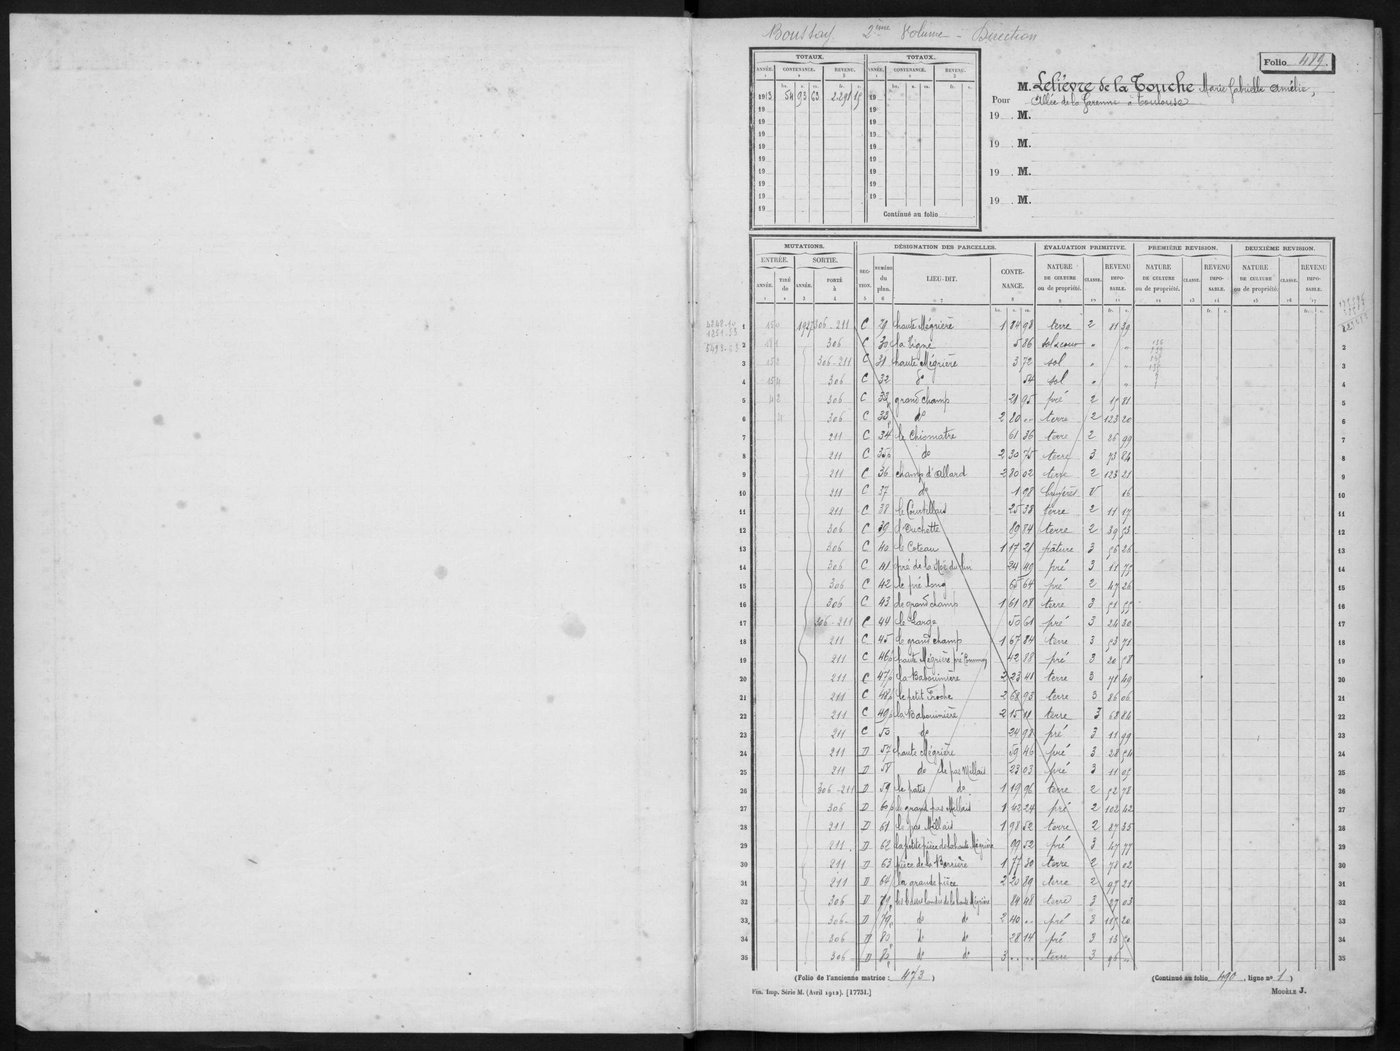 Boussay 2ème Volume - Direction
Folio 489.
TOTAUX. TOTAUX.
ANNÉE. CONTENANCE. REVENU. ANNÉE. CONTENANCE. REVENU.
1913 54 93 63 2291 15
Continué au folio
M. Lelièvre de la Touche Marie Gabrielle Amélie,
Pour Allée de la Garenne à Toulouse
19 M.
19 M.
19 M.
19 M.
MUTATIONS. DÉSIGNATION DES PARCELLES. ÉVALUATION PRIMITIVE. PREMIÈRE REVISION. DEUXIÈME REVISION.
ENTRÉE. SORTIE. SECTION. NUMÉRO du plan. LIEU-DIT. CONTENANCE. NATURE DE CULTURE ou de propriété. CLASSE. REVENU IMPOSABLE. NATURE DE CULTURE ou de propriété. CLASSE. REVENU IMPOSABLE. NATURE DE CULTURE ou de propriété. CLASSE. REVENU IMPOSABLE.
ANNÉE. TIRÉ de ANNÉE. PORTÉ à
1 1927 306-211 C 29 haute Mégrière 1 84 98 terre 2 81 39
2 306 C 30 la Vigne 5 86 sol & cour " "
3 306-211 C 31 haute Mégrière 3 72 sol " "
4 306 C 32 do 54 sol " "
5 306 C 33 grand champ 21 95 pré 2 15 81
6 306 C 33 do 2 80 " terre 2 123 20
7 211 C 34 le Chiomatre 61 36 terre 2 26 99
8 211 C 35 do 2 30 75 terre 3 73 84
9 211 C 36 champ d'Allard 2 80 02 terre 2 123 21
10 211 C 37 do 1 98 bruyères V 16
11 211 C 38 le Courtillais 25 38 terre 2 11 17
12 306 C 39 89 84 terre 2 39 53
13 306 C 40 le Coteau 1 17 21 pâture 3 56 26
14 306 C 41 24 49 pré 3 11 75
15 306 C 42 le pré long 65 64 pré 2 47 26
16 306 C 43 le grand champ 1 61 08 terre 3 51 55
17 306-211 C 44 le Large 50 61 pré 3 24 30
18 211 C 45 le grand champ 1 67 84 terre 3 53 71
19 211 C 46 haute Mégrière pré 42 88 pré 3 20 58
20 211 C 47 la Babouinière 2 23 41 terre 3 71 49
21 211 C 48 le petit 2 68 93 terre 3 86 06
22 211 C 49 la Babouinière 2 15 11 terre 3 68 84
23 211 C 53 do 24 98 pré 3 11 99
24 211 D 57 haute Mégrière 59 46 pré 3 28 54
25 211 D do le pas Millais 23 03 pré 3 11 05
26 306-211 D 59 le patis do 1 19 96 terre 2 52 78
27 306 D 60 le grand pas Millais 1 42 24 pré 2 102 42
28 211 D 61 le pas Millais 1 98 52 terre 2 87 35
29 211 D 62 la petite pièce de la haute Mégrière 99 52 pré 3 47 77
30 211 D 63 pièce de la Barrière 1 77 30 terre 2 78 02
31 211 D 64 la grande pièce 2 20 89 terre 2 97 21
32 306 D 79 landes de la haute Mégrière 84 48 terre 3 27 03
33 306 D 79 do do 2 40 " pré 3 115 20
34 306 D 80 do do 28 14 pré 3 13 50
35 306 D do do 3 " " terre 3 96 "
(Folio de l'ancienne matrice : 473)
(Continué au folio 490, ligne no 1)
Fin. Imp. Série M. (Avril 1912). [17731.]
MODÈLE J.